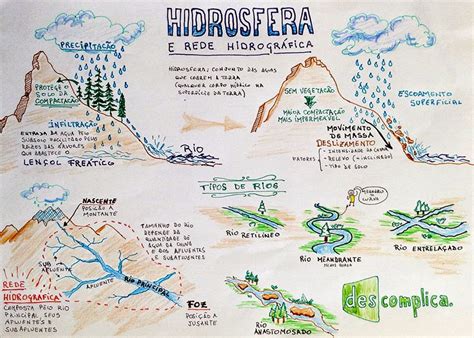 HIDROSFERA
E REDE HIDROGRÁFICA
HIDROSFERA: CONJUNTO DAS ÁGUAS
QUE COBREM A TERRA
(QUALQUER CORPO HÍDRICO NA
SUPERFÍCIE DA TERRA)
PRECIPITAÇÃO
PROTEGE O
SOLO DA
COMPACTAÇÃO
INFILTRAÇÃO
ENTRADA DA ÁGUA PELO
SUBSOLO FACILITADO PELAS
RAÍZES DAS ÁRVORES
QUE ABASTECE O
LENÇOL FREÁTICO
RIO
SEM VEGETAÇÃO
MAIOR COMPACTAÇÃO
MAIS IMPERMEÁVEL
ESCOAMENTO
SUPERFICIAL
MOVIMENTO
DE MASSA
DESLIZAMENTO
FATORES
- INTENSIDADE DA CHUVA
- RELEVO (+ INCLINADO)
- TIPO DE SOLO
NASCENTE
POSIÇÃO A
MONTANTE
TAMANHO DO RIO
DEPENDE DA
QUANTIDADE DE
ÁGUA DA CHUVA
E DOS AFLUENTES
E SUBAFLUENTES
SUB AFLUENTE
AFLUENTE
RIO PRINCIPAL
REDE
HIDROGRÁFICA
COMPOSTA PELO RIO
PRINCIPAL, SEUS
AFLUENTES E
SUBAFLUENTES
FOZ
POSIÇÃO A
JUSANTE
TIPOS DE RIOS
RIO RETILÍNEO
RIO MEANDRANTE
RIO ENTRELAÇADO
RIO
ANASTOMOSADO
descomplica.